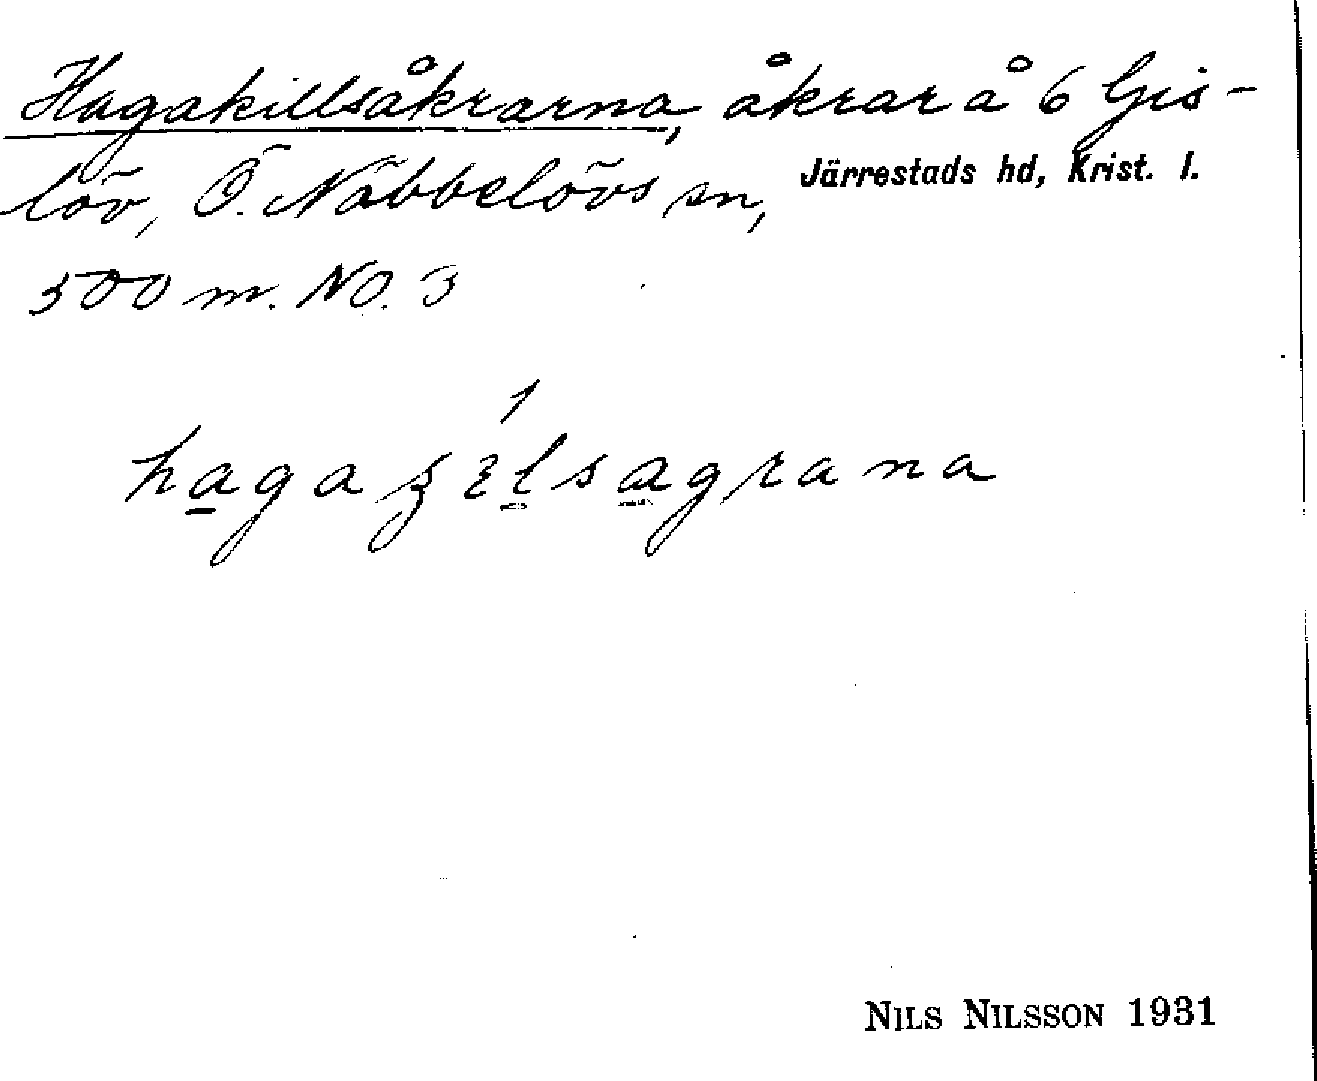 Hagakillsåkrarna, åkrar å 6 Gis-
löv, Ö. Nöbbelövs sn, Järrestads hd, Krist. l.
500 m. NO. 3
1
hagaʒɛlsagrana
NILS NILSSON 1931